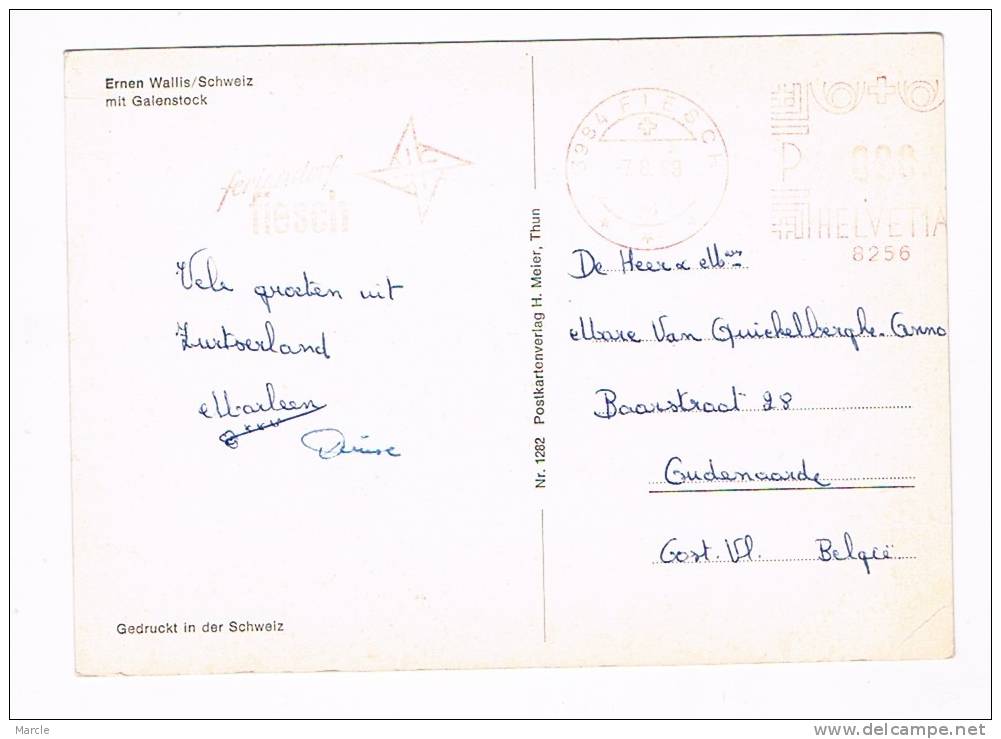 Ernen Wallis/Schweiz
mit Galenstock
feriendorf
fiesch
3984 FIESCH
P
HELVETIA
8256
Vele groeten uit
Zwitserland
Marleen
xxx
Denise
Nr. 1282 Postkartenverlag H. Meier, Thun
De Heer &
Mare Van Quickelberghe-
Baarstraat 28
Oudenaarde
Oost. Vl. België
Gedruckt in der Schweiz
Marcle
www.delcampe.net